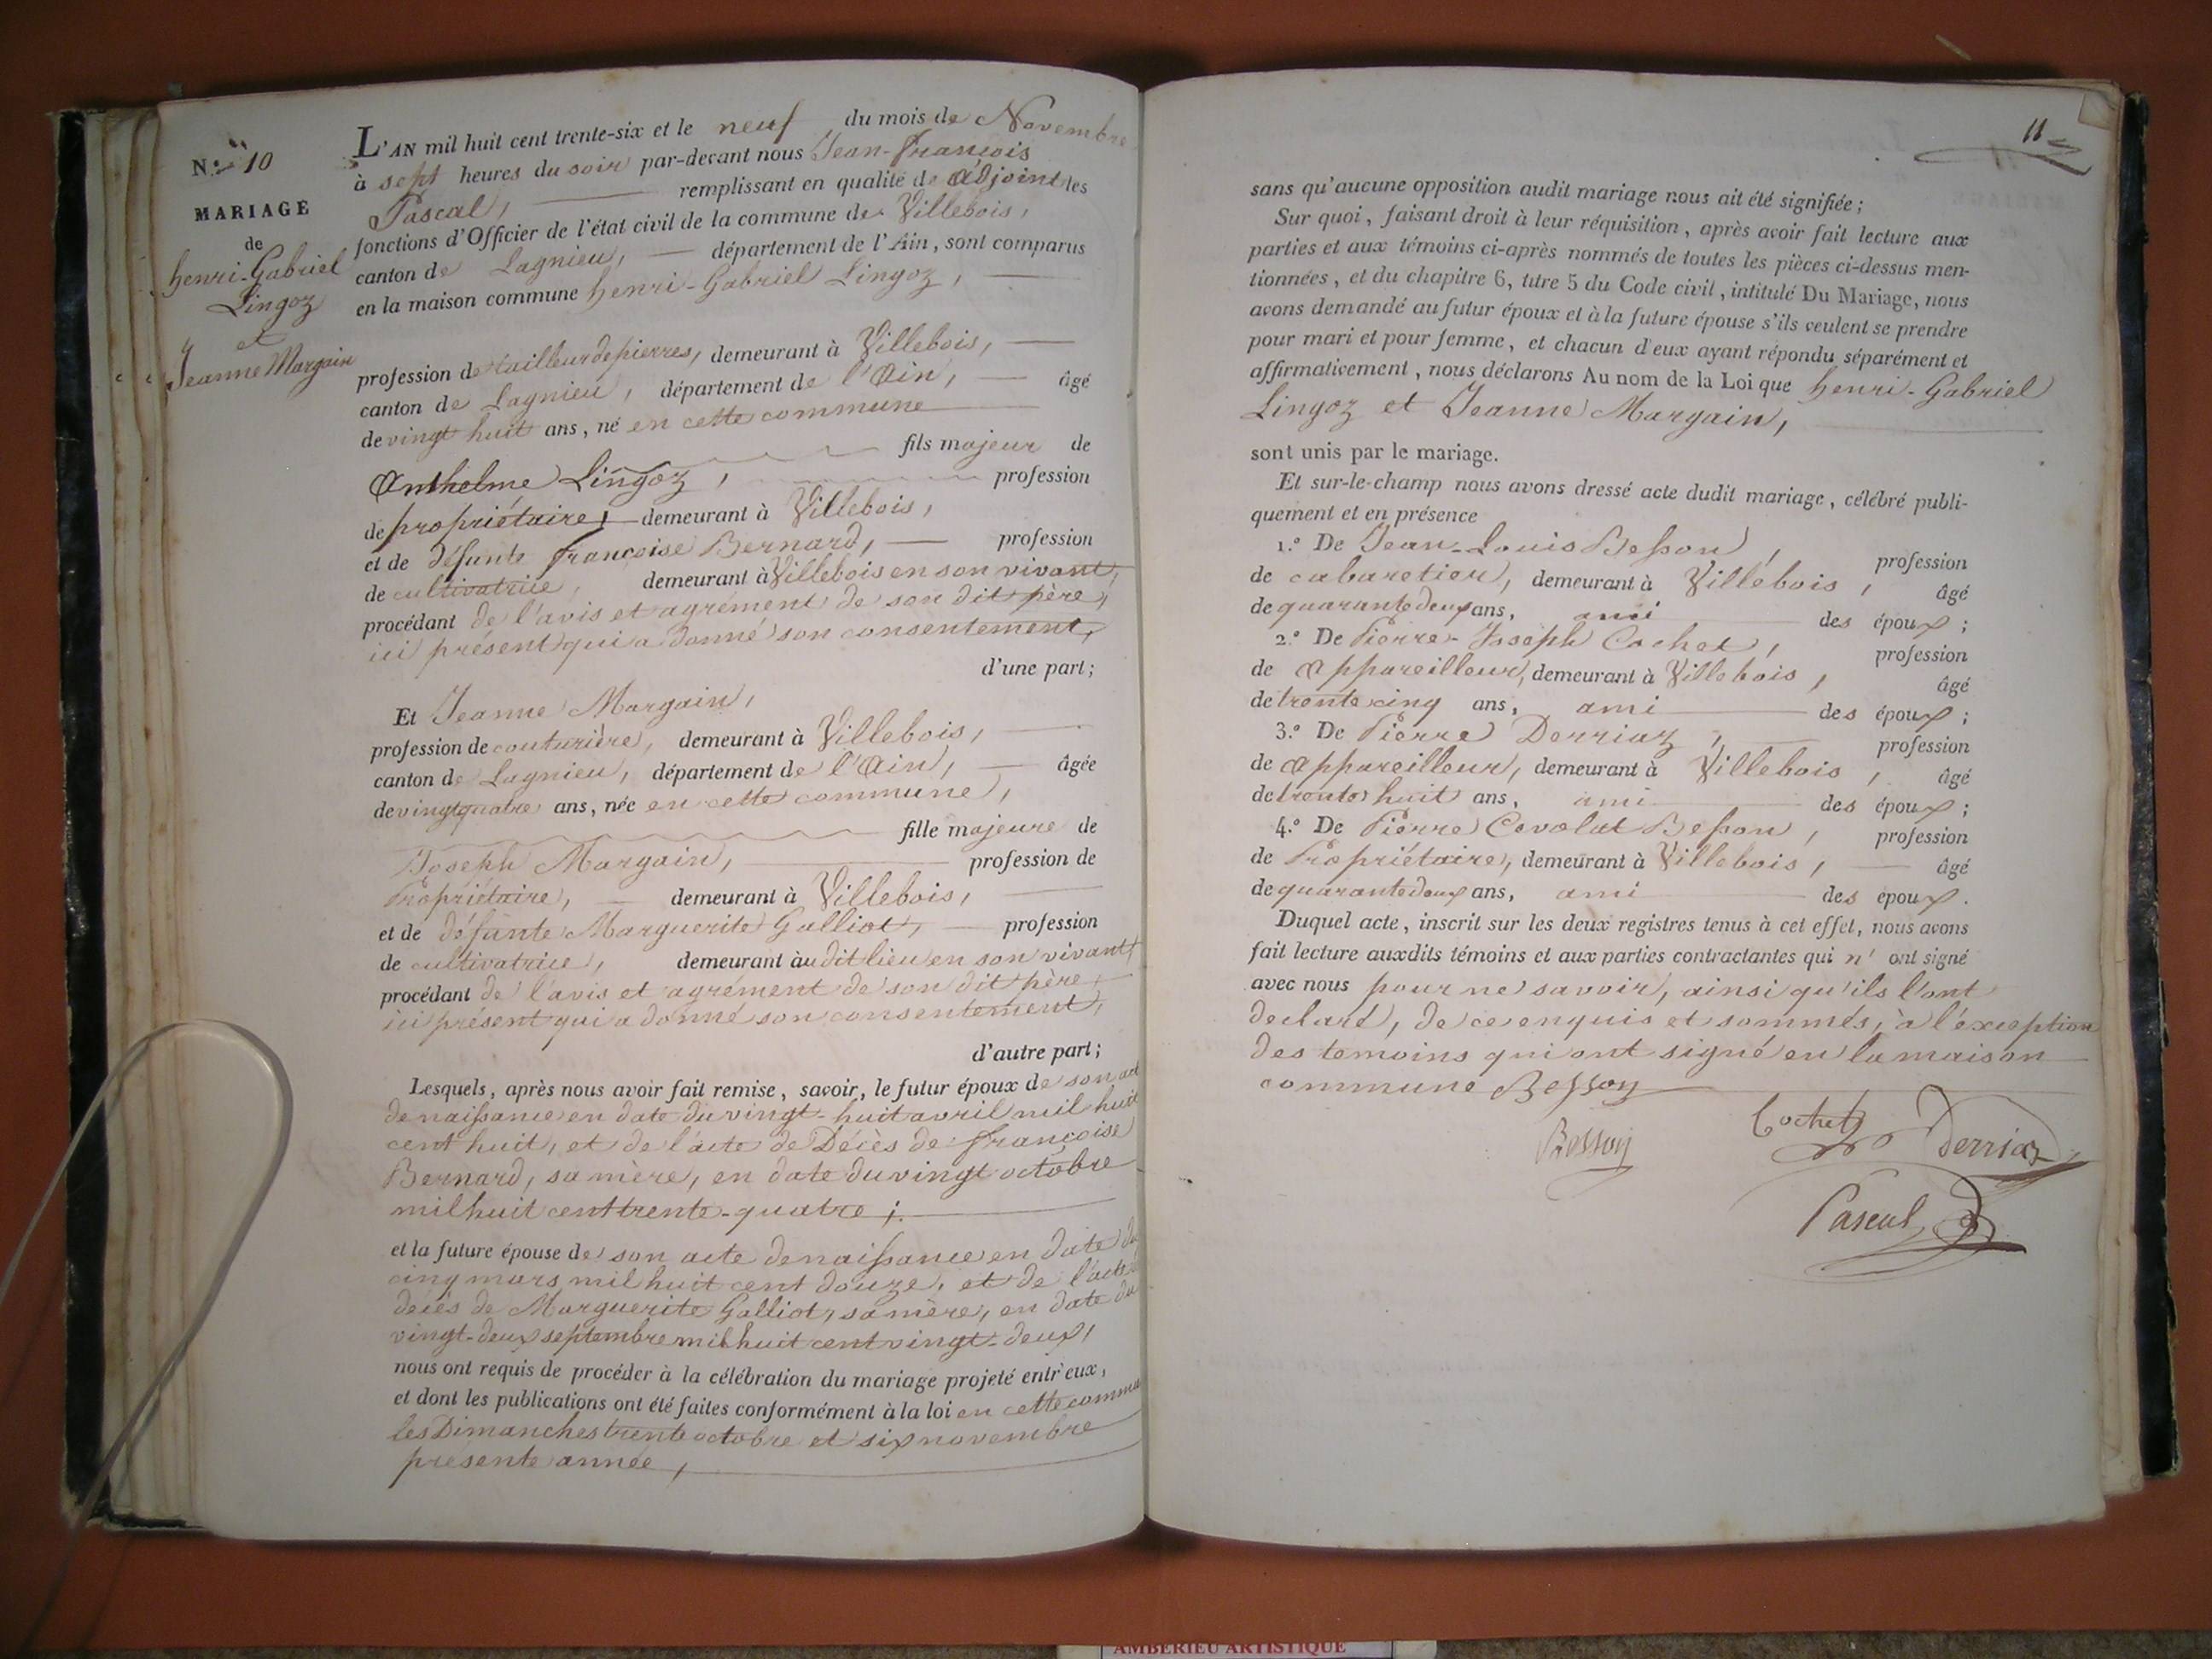 N.° 10
MARIAGE
de
henri-Gabriel
Lingoz
et
Jeanne Margain
L'AN mil huit cent trente-six et le neuf du mois de Novembre
à sept heures du soir par-devant nous Jean-François
Pascal, remplissant en qualité d'adjoint les
fonctions d'Officier de l'état civil de la commune de Villebois,
canton de Lagnieu, département de l'Ain, sont comparus
en la maison commune henri-Gabriel Lingoz,
profession de tailleur de pierres, demeurant à Villebois,
canton de Lagnieu, département de l'Ain, âgé
de vingt huit ans, né en cette commune
fils majeur de
Anthelme Lingoz, profession
de propriétaire, demeurant à Villebois,
et de défunte françoise Bernard, profession
de cultivatrice, demeurant à Villebois en son vivant,
procédant de l'avis et agrément de son dit père,
ici présent qui a donné son consentement,
d'une part;
Et Jeanne Margain,
profession de couturière, demeurant à Villebois,
canton de Lagnieu, département de l'Ain, âgée
de vingt quatre ans, née en cette commune,
fille majeure de
Joseph Margain, profession de
Propriétaire, demeurant à Villebois,
et de défunte Marguerite Galliot, profession
de cultivatrice, demeurant audit lieu en son vivant,
procédant de l'avis et agrément de son dit père,
ici présent qui a donné son consentement,
d'autre part;
Lesquels, après nous avoir fait remise, savoir, le futur époux de son act
de naissance en date du vingt-huit avril mil huit
cent huit, et de l'acte de Décès de françoise
Bernard, sa mère, en date du vingt octobre
mil huit cent trente-quatre;
et la future épouse de son acte de naissance en date du
cinq mars mil huit cent douze, et de l'acte de
décès de Marguerite Galliot, sa mère, en date du
vingt-deux septembre mil huit cent vingt-deux,
nous ont requis de procéder à la célébration du mariage projeté entr'eux,
et dont les publications ont été faites conformément à la loi en cette commu
les Dimanches trente octobre et six novembre
présente année,
11
sans qu'aucune opposition audit mariage nous ait été signifiée;
Sur quoi, faisant droit à leur réquisition, après avoir fait lecture aux
parties et aux témoins ci-après nommés de toutes les pièces ci-dessus men-
tionnées, et du chapitre 6, titre 5 du Code civil, intitulé Du Mariage, nous
avons demandé au futur époux et à la future épouse s'ils veulent se prendre
pour mari et pour femme, et chacun d'eux ayant répondu séparément et
affirmativement, nous déclarons Au nom de la Loi que henri-Gabriel
Lingoz et Jeanne Margain,
sont unis par le mariage.
Et sur-le-champ nous avons dressé acte dudit mariage, célébré publi-
quement et en présence
1.° De Jean-Louis Besson, profession
de cabaretier, demeurant à Villebois, âgé
de quarante deux ans, ami des époux;
2.° De Pierre-Joseph Cochet, profession
de Appareilleur, demeurant à Villebois, âgé
de trente cinq ans, ami des époux;
3.° De Pierre Derriaz, profession
de Appareilleur, demeurant à Villebois, âgé
de trente huit ans, ami des époux;
4.° De Pierre Covolat Besson, profession
de Propriétaire, demeurant à Villebois, âgé
de quarante deux ans, ami des époux.
Duquel acte, inscrit sur les deux registres tenus à cet effet, nous avons
fait lecture auxdits témoins et aux parties contractantes qui n' ont signé
avec nous pour ne savoir, ainsi qu'ils l'ont
declaré, de ce enquis et sommés, à l'exception
des temoins qui ont signé en la maison
commune Besson
Besson
Cochet
Derriaz
Pascal
AMBERIEU ARTISTIQUE